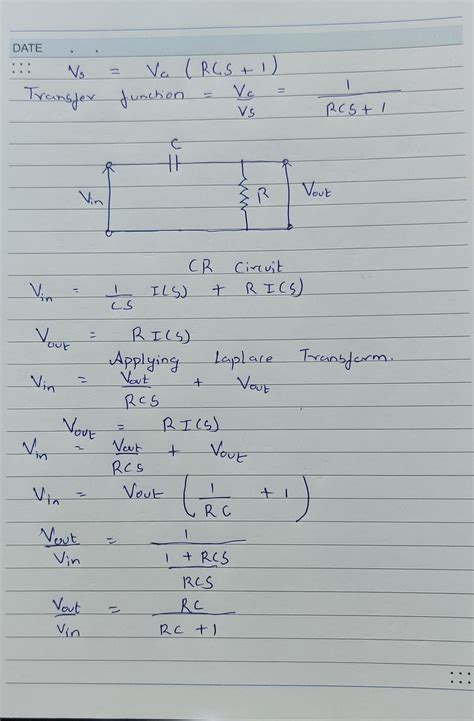 DATE . .
Vs = Vc (RCS + 1)
Transfer function = Vc/Vs = 1/(RCS + 1)
C
Vin R Vout
CR Circuit
Vin = 1/CS I(S) + R I(S)
Vout = R I(S)
Applying Laplace Transform.
Vin = Vout/RCS + Vout
Vout = R I(S)
Vin = Vout/RCS + Vout
Vin = Vout (1/RC + 1)
Vout/Vin = 1/((1 + RCS)/RCS)
Vout/Vin = RC/(RC + 1)